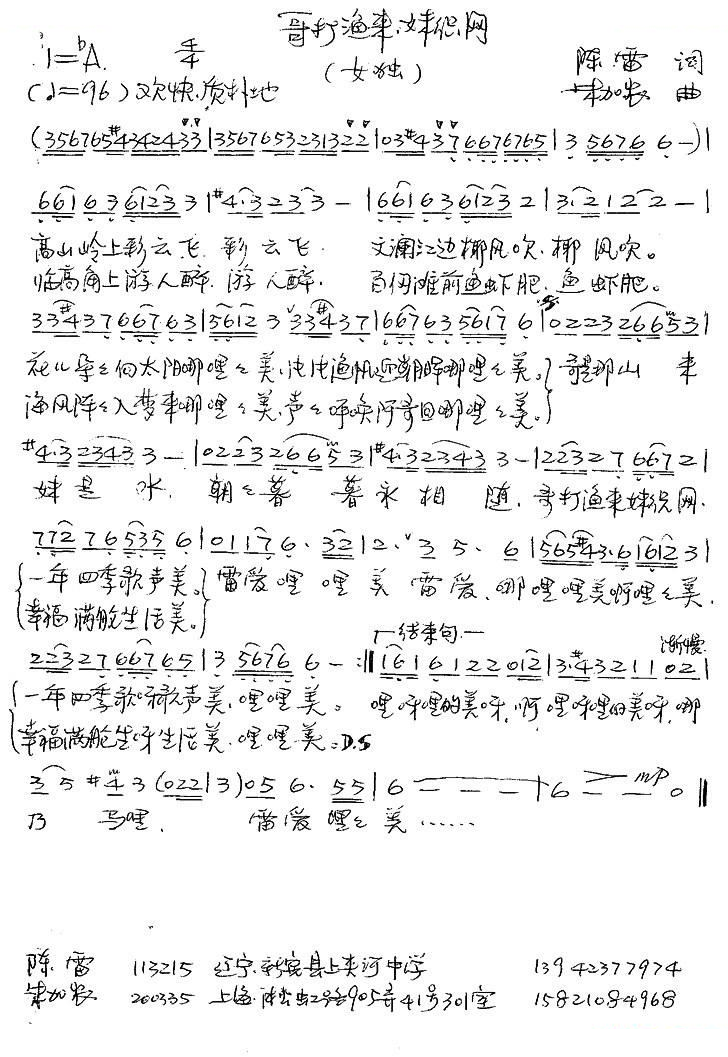 哥打渔来妹织网
1=bA 4/4 (女独) 陈雷 词
(♩=96) 欢快.质朴地 朱加农 曲
(356765#4342433|35676532313 22|03#43 7 6676765|3 5676 6 -)|
6616 3 6123 3|#4.323 3 -|6616 3 6123 2|3.212 2 -|
高山岭上彩云飞.彩云飞. 文澜江边椰风吹.椰风吹。
临高角上游人醉.游人醉. 百仞滩前鱼虾肥.鱼虾肥。
33#437 667 63|5612 3 33#437|667635617 6|0223266531|
花儿朵々向太阳哪哩々美,片片渔帆迎朝晖哪哩々美。 哥是那山来
海风阵々入梦来哪哩々美,声々呼唤阿哥回哪哩々美。
#4.32343 3 -|02232665 3|#4.32343 3 -|223276672|
妹是水, 朝々暮暮永相随,哥打渔来妹织网.
772765356|01176. 32|2. 3 5. 6|565#43.616123|
一年四季歌声美。 雷爱哩哩美雷爱,哪哩哩美啊哩々美,
幸福满舱生活美。
结束句 渐慢
2232766765|3 5676 6 -:‖1616122012|3.#4321102|
一年四季歌呀歌声美,哩哩美。 哩呀哩的美呀,啊哩呀哩的美呀,哪
幸福满舱生呀生活美,哩哩美。D.S
35#43(022|3)056. 55|6 - - -|6 - - 0‖ mp
乃马哩, 雷爱哩々美……
陈雷 113215 辽宁.新宾县上夹河中学 13942377974
朱加农 200335 上海.淞虹路905弄41号301室 15821084968